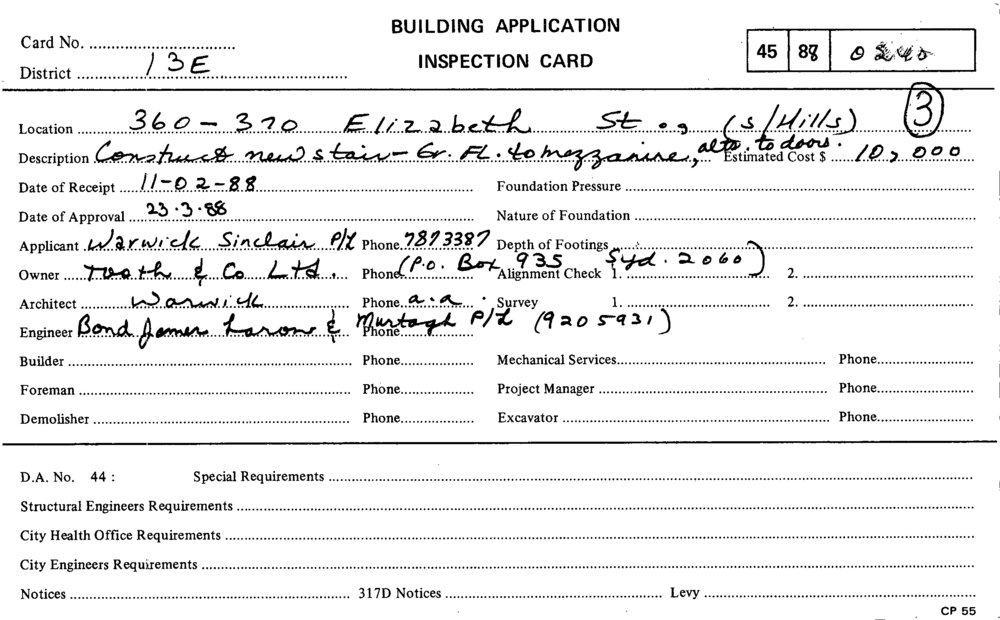 BUILDING APPLICATION
INSPECTION CARD
Card No.
District 13E
45 88 0240
Location 360-370 Elizabeth St (S/Hills) 3
Description Construct new stair - Gr. FL. to mezzanine, altn. to doors. Estimated Cost $ 10,000
Date of Receipt 11-02-88 Foundation Pressure
Date of Approval 23.3.88 Nature of Foundation
Applicant Warwick Sinclair P/L Phone 7873387 Depth of Footings
Owner Tooth & Co Ltd. Phone (P.O. Box 935 Syd. 2060) Alignment Check 1. 2.
Architect Warwick Phone a.a. Survey 1. 2.
Engineer Bond James Larone & Murtagh P/L (9205931) Phone
Builder Phone Mechanical Services Phone
Foreman Phone Project Manager Phone
Demolisher Phone Excavator Phone
D.A. No. 44 : Special Requirements
Structural Engineers Requirements
City Health Office Requirements
City Engineers Requirements
Notices 317D Notices Levy
CP 55